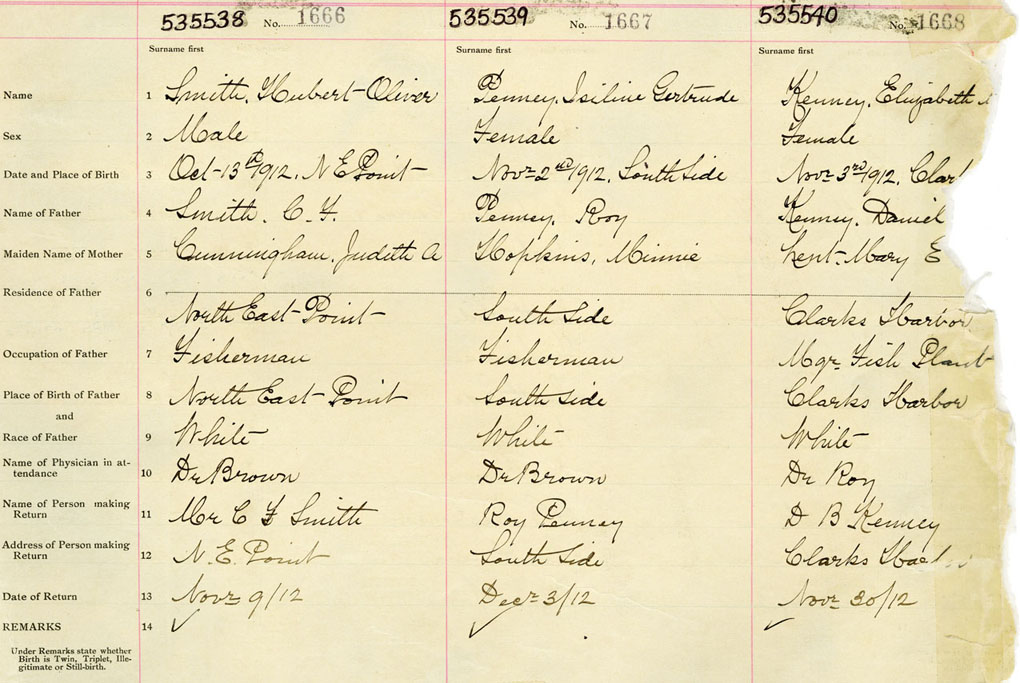 535538 No. 1666 535539 No. 1667 535540 No. 1668
Surname first Surname first Surname first
Name 1 Smith, Hubert Oliver Penney, Isiline Gertrude Kenney, Elizabeth
Sex 2 Male Female Female
Date and Place of Birth 3 Oct 13th 1912. N E Point Novr 2nd 1912. South Side Novr 3rd 1912. Clar
Name of Father 4 Smith. C. F. Penney. Roy Kenney, Daniel
Maiden Name of Mother 5 Cunningham, Judith A Hopkins, Minnie Kent Mary E
Residence of Father 6
North East Point South Side Clarks Harbor
Occupation of Father 7 Fisherman Fisherman Mgr Fish Plant
Place of Birth of Father 8 North East Point South Side Clarks Harbor
and
Race of Father 9 White White White
Name of Physician in at-
tendance 10 Dr Brown Dr Brown Dr Roy
Name of Person making
Return 11 Mr C F Smith Roy Penney D B Kenney
Address of Person making
Return 12 N. E. Point South Side Clarks
Date of Return 13 Novr 9/12 Decr 3/12 Novr 30/12
REMARKS 14
Under Remarks state whether
Birth is Twin, Triplet, Ille-
gitimate or Still-birth.